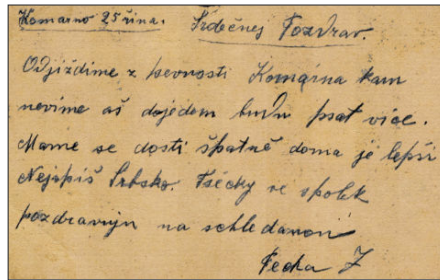 Komarno 25 října. Srdečnej Pozdrav.
Odjíždíme z pevnosti Komárna kam
nevíme aš dojedem budu psat více.
Mame se dosti špatně doma je lepši
Nejspiš Srbsko. Všecky ve spolek
pozdravujn na schledanoui